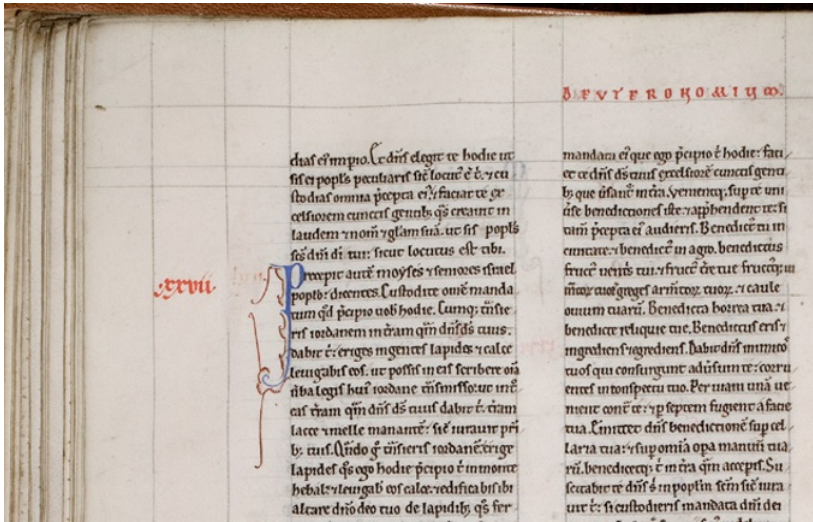 DEUTERONOMIUM.
dias ei' impio. Et dñs elegit te hodie ut
sis ei popl's peculiaris sic̄ locut' ē t̄. ⁊ cu
stodias omnia p̄cepta ei'. ⁊ faciat te ex
celsiorem cunctis gentib; q̄s creauit in
laudem ⁊ nom̄ ⁊ gl̄am suā. ut sis popl's
sc̄s dn̄i dī tui: sicut locutus est tibi.
xxvii
Precepit autē moyses ⁊ seniores israel
popl̄o: dicentes. Custodite om̄e manda
tum qd̄ p̄cipio uob̄ hodie. Cumq; t̄nsie
ris iordanem in t̄ram quā dn̄s d̄s tuus
dabit t̄: eriges ingentes lapides ⁊ calce
leuigabis eos. ut possis in eis scribere om̄ia
ūba legis hui' iordane t̄nsmisso: ut int̄
eas t̄ram quā dn̄s d̄s tuus dabit t̄. t̄ram
lacte ⁊ melle manantē: sic̄ iurauit pr̄i
b; tuis. Qn̄do g̊ t̄nsieris iordanē. erige
lapides q̄s ego hodie p̄cipio t̄ in monte
hebal: ⁊ leuigab̄ eos calce. ⁊ edificabis ibi
altare dn̄o deo tuo de lapidib; q̄s fer
mandata ei' que ego p̄cipio t̄ hodie: faci
et te dn̄s d̄s tuus excelsiorē cunctis genti
b; que ūsant' in t̄ra. Uenientq; sup te uni
ūse benedictiones iste. ⁊ app̄hendent te: si
tam̄ p̄cepta ei' audieris. Benedict' tu in
ciuitate. ⁊ benedict' in agro. benedictus
fruct' uentris tui. ⁊ fruct' t̄re tue fructusq; iu
mtōꝝ tuoꝝ greges armtōꝝ tuoꝝ. ⁊ caule
ouium tuarū. Benedicta horrea tua. ⁊
benedicte reliquie tue. Benedictus eris ⁊
ingrediens ⁊ egrediens. Dabit dn̄s inimico᷒
tuos qui consurgunt aduersum te: corru
entes in conspectu tuo. Per uiam unā ue
nient cont̄ te: ⁊ p septem fugient a facie
tua. Emittet dn̄s benedictionē sup cel
laria tua: ⁊ sup om̄ia opa manuū tua
rū. benedicetq; t̄ in t̄ra quā accep̄is. Su
scitabit te dn̄s s̄ in popl̄m sc̄m sic̄ iura
uit t̄: si custodieris mandata dn̄i dei